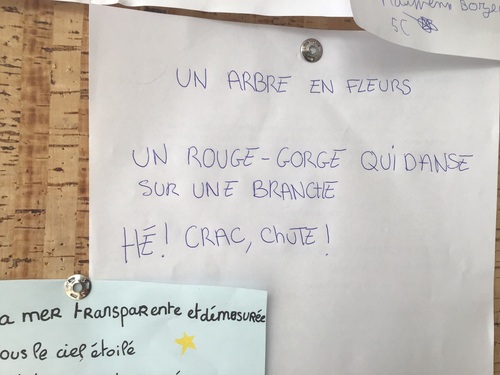 5C
UN ARBRE EN FLEURS
UN ROUGE-GORGE QUI DANSE
SUR UNE BRANCHE
HÉ! CRAC, CHUTE!
a mer transparente et démesurée
ous le ciel étoilé